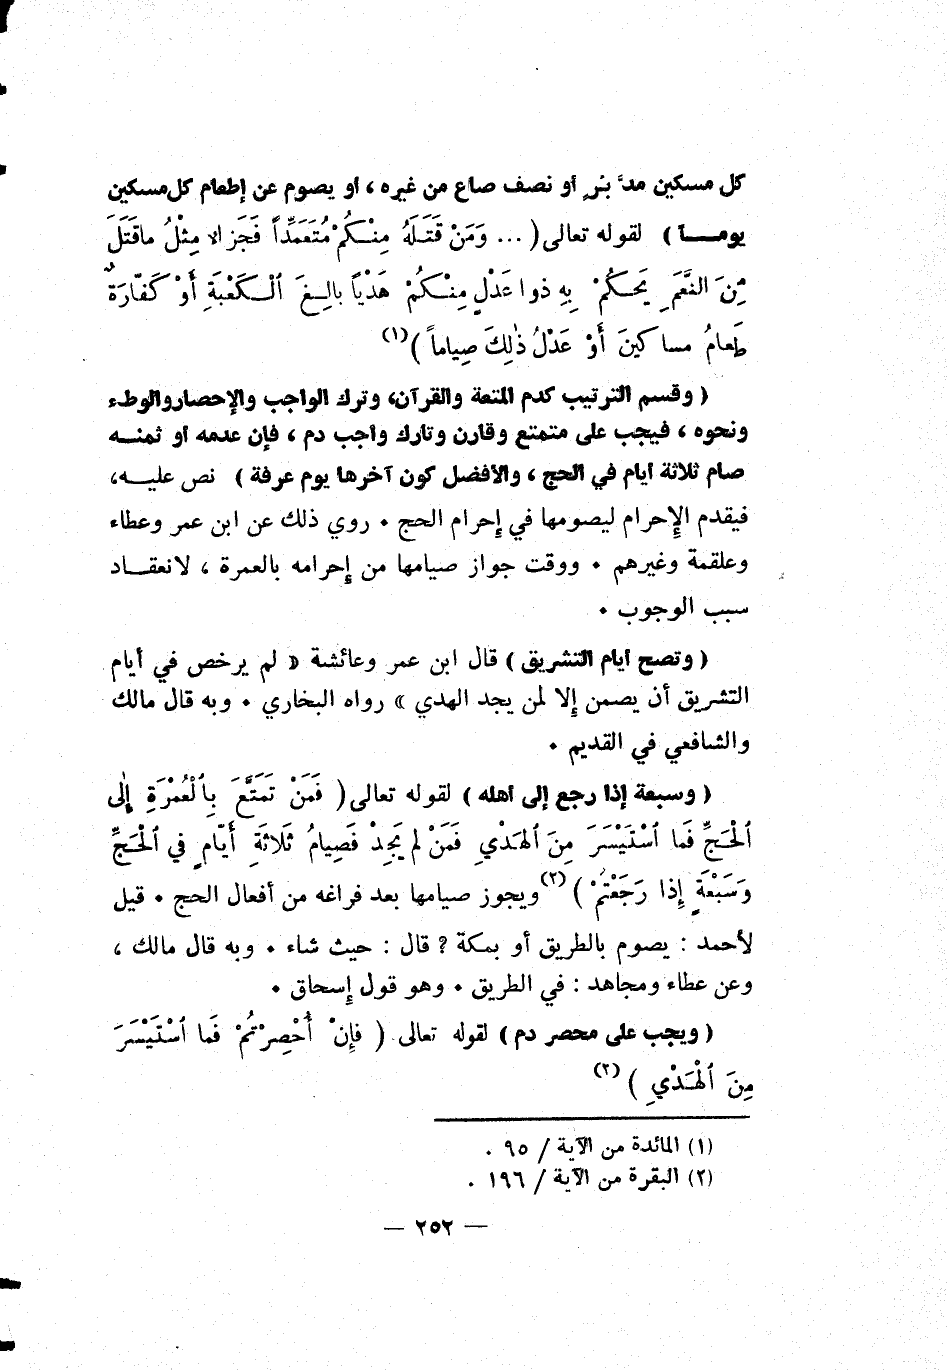 كل مسكين مدَّ بُرٍ أو نصف صاع من غيره ، أو يصوم عن إطعام كل مسكين
يومـــاً ) لقوله تعالى ( ... وَمَنْ قَتَلَهُ مِنْـكُمْ مُتَعَمِّداً فَجَزَاءٌ مِثْلُ ماقَتَلَ
مِنَ النَّعَمِ يَحـكُمُ بِهِ ذوا عَدْلٍ مِنْـكُمْ هَدْياً بالِـغَ ٱلْـكَعْبَةِ أَوْ كَفّارَةٌ
طَعامُ مساكينَ أَوْ عَدْلُ ذٰلِكَ صِياماً )(١)
( وقسم الترتيب كدم المتعة والقرآن، وترك الواجب والإحصاروالوطء
ونحوه ، فيجب على متمتع وقارن وتارك واجب دم ، فإن عدمه أو ثمنـــه
صام ثلاثة أيام في الحج ، والأفضل كون آخرها يوم عرفة ) نص عليـــه،
فيقدم الإحرام ليصومها في إحرام الحج . روي ذلك عن ابن عمر وعطاء
وعلقمة وغيرهم . ووقت جواز صيامها من إحرامه بالعمرة ، لانعقـــاد
سبب الوجوب .
( وتصح أيام التشريق ) قال ابن عمر وعائشة « لم يرخص في أيام
التشريق أن يصمن إلا لمن يجد الهدي » رواه البخاري . وبه قال مالك
والشافعي في القديم .
( وسبعة إذا رجع إلى أهله ) لقوله تعالى ( فَمَنْ تَمَتَّعَ بِٱلْعُمْرَةِ إِلى
ٱلْحَجِّ فَما ٱسْتَيْسَرَ مِنَ ٱلهَدْيِ فَمَنْ لم يَجِدْ فَصِيامُ ثَلاثَةِ أَيّامٍ في ٱلْحَجِّ
وَسَبْعَةٍ إِذا رَجَعْتُمْ )(٢) ويجوز صيامها بعد فراغه من أفعال الحج . قيل
لأحمد : يصوم بالطريق أو بمكة ? قال : حيث شاء . وبه قال مالك ،
وعن عطاء ومجاهد : في الطريق . وهو قول إسحاق .
( ويجب على محصر دم ) لقوله تعالى ( فإِنْ أُحْصِرْتُمْ فَما ٱسْتَيْسَرَ
مِنَ ٱلْهَـدْيِ )(٢)
(١) المائدة من الآية / ٩٥ .
(٢) البقرة من الآية / ١٩٦ .
— ٢٥٢ —